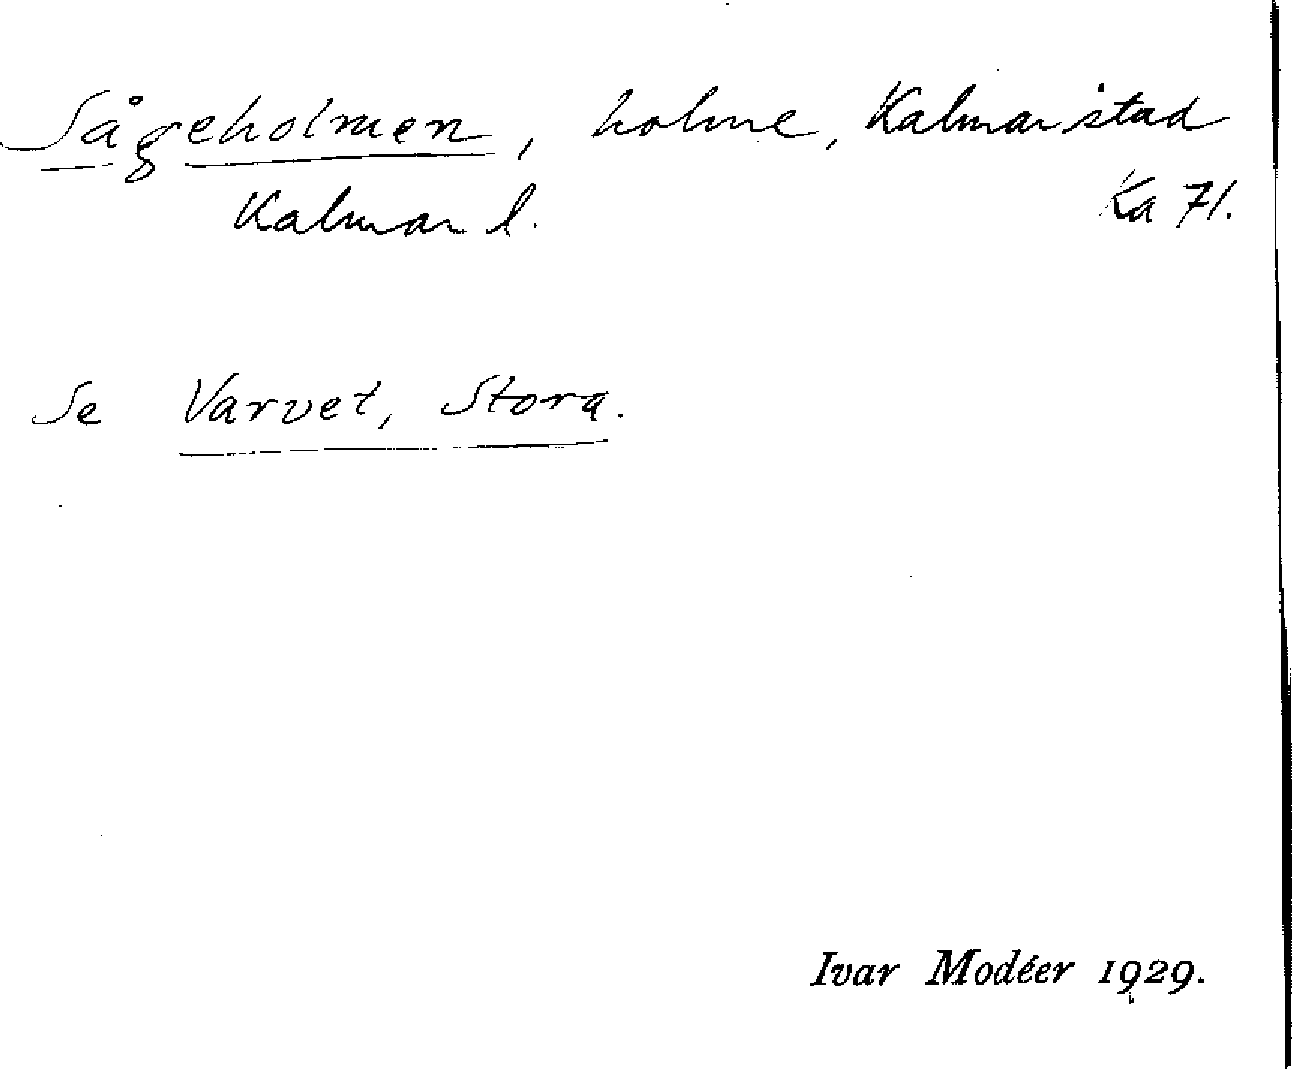 Sågeholmen, holme, Kalmar stad
Kalmar l. Ka 71.
Se Varvet, Stora.
Ivar Modéer 1929.